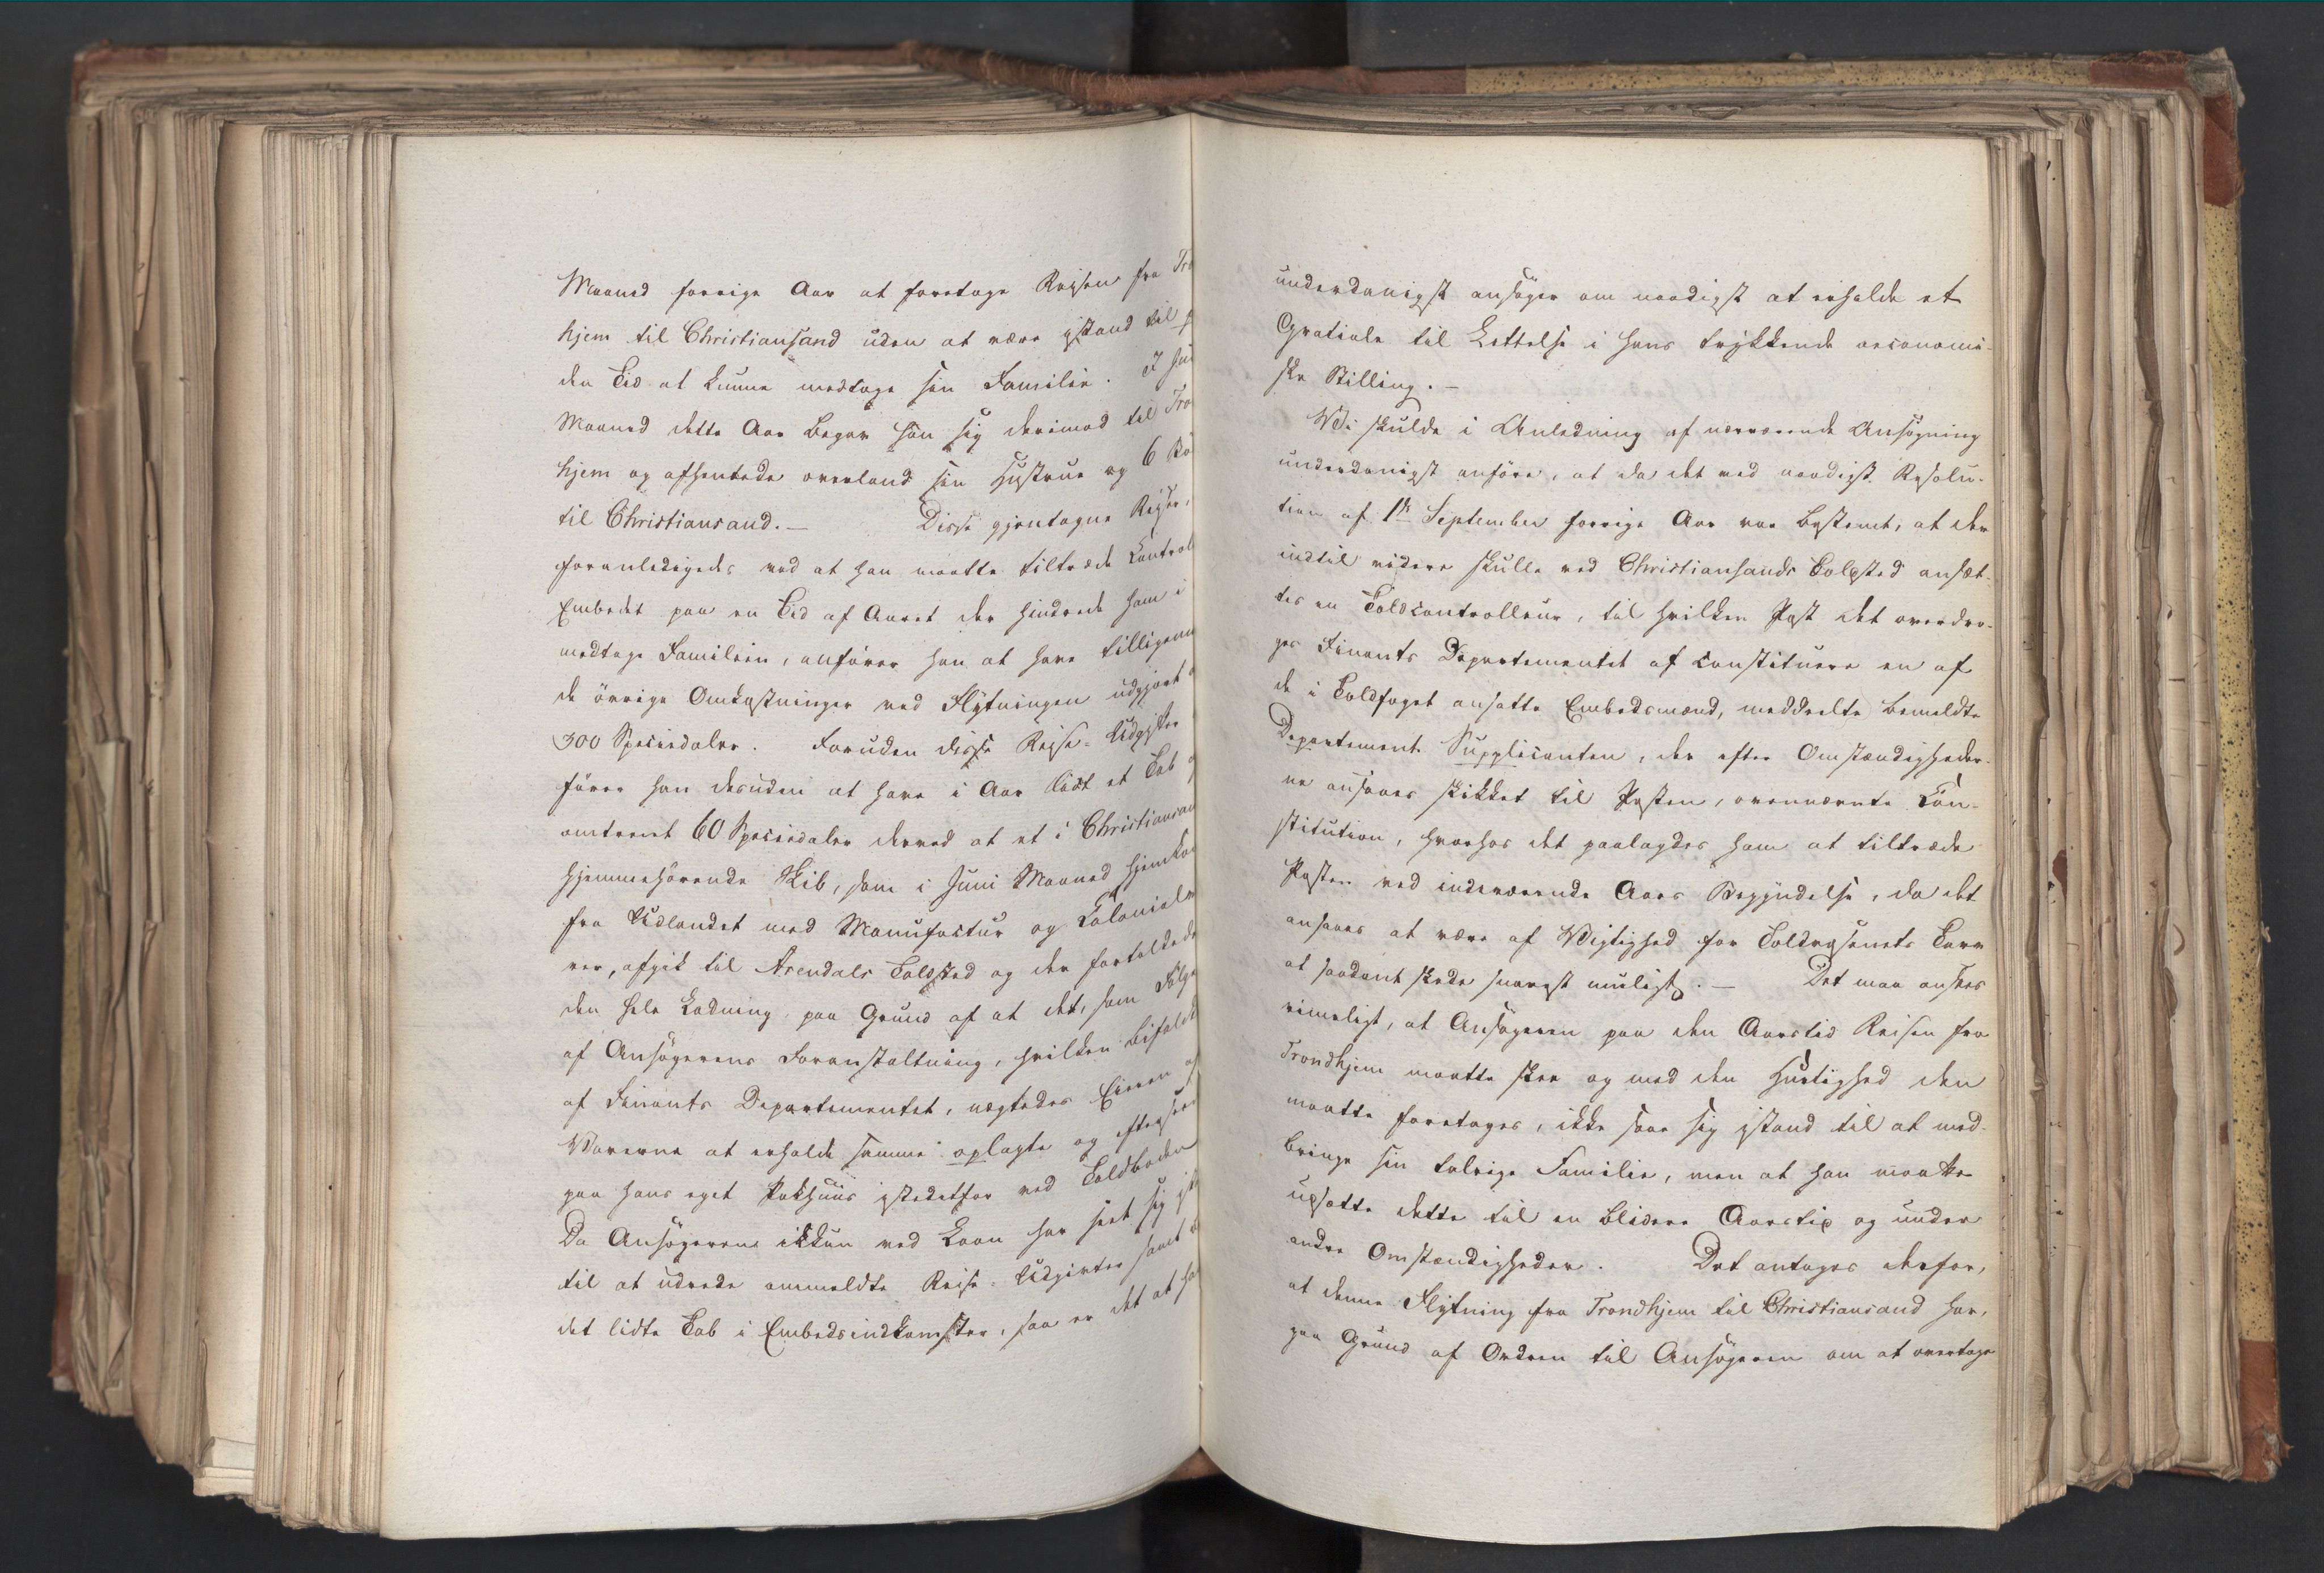 Maaned forrige Aar at foretage Reisen fra Tro
hjem til Christiansand uden at være istand til p
den Tid at kunne medtage sin Familie. I Jun
Maaned dette Aar begav han sig derimod til Tro
hjem og afhentede overland sin Hustrue og 6 Bö
til Christiansand.— Disse gjentagne Reiser,
foranledigede ved at han maatte tiltræde Controll
Embedet paa en Tid af Aaret der hindrede ham i
medtage Familien, anförer han at have tilligem
de övrige Omkostninger ved Flytningen udgjort
300 Speciedaler. Foruden disse Reise-Udgifter
förer han desuden at have i Aar lidt et Tab
omtrent 60 Speciedaler derved at et i Christiansan
hjemmehörende Skib, som i Juni Maaned hjemkom
fra Udlandet med Manufactur og Colonialv
rer, afgik til Arendals Toldsted og der fortoldede
den hele Ladning paa Grund af at det, som Fölge
af Ansögerens Foranstaltning, hvilken bifaldt
af Finants Departementet, nægtedes Eieren af
Varerne at erholde samme oplagte og efterseet
paa hans eget Pakhuus istedetfor ved Toldboden
Da Ansögeren ikkun ved Laan har seet sig ist
til at udrede ommeldte Reise-Udgivter samt
det lidte Tab i Embedsindkomster, saa er det at ha
underdanigst ansöger om naadigst at erholde et
Gratiale til Lettelse i hans trykkende oeconomi-
ske Stilling.—
Vi skulde i Anledning af nærværende Ansögning
underdanigst anföre, at da det ved naadigst Resolu-
tion af 1ste September forrige Aar var bestemt, at der
indtil videre skulle ved Christiansands Toldsted ansæt-
tes en Toldcontrolleur, til hvilken Post det overdro-
ges Finants Departementet at constituere en af
de i Toldfaget ansatte Embedsmænd, meddeelte bemeldte
Departement Supplicanten, der efter Omstændigheder-
ne ansaaes skikket til Posten, ovennævnte Con-
stitution, hvorhos det paalagdes ham at tiltræde
Posten ved indeværende Aars Begyndelse, da det
ansaaes at være af Vigtighed for Toldvæsenets Tarv
at saadant skede snarest muligt.— Det maa ansees
rimeligt, at Ansögeren paa den Aarstid Reisen fra
Trondhjem maatte skee og med den Hurtighed den
maatte foretages, ikke saae sig istand til at med-
bringe sin talrige Familie, men at han maatte
udsætte dette til en blidere Aarstid og under
andre Omstændigheder. Det antages derfor,
at denne Flytning fra Trondhjem til Christiansand har,
paa Grund af Ordren til Ansögeren om at overtage